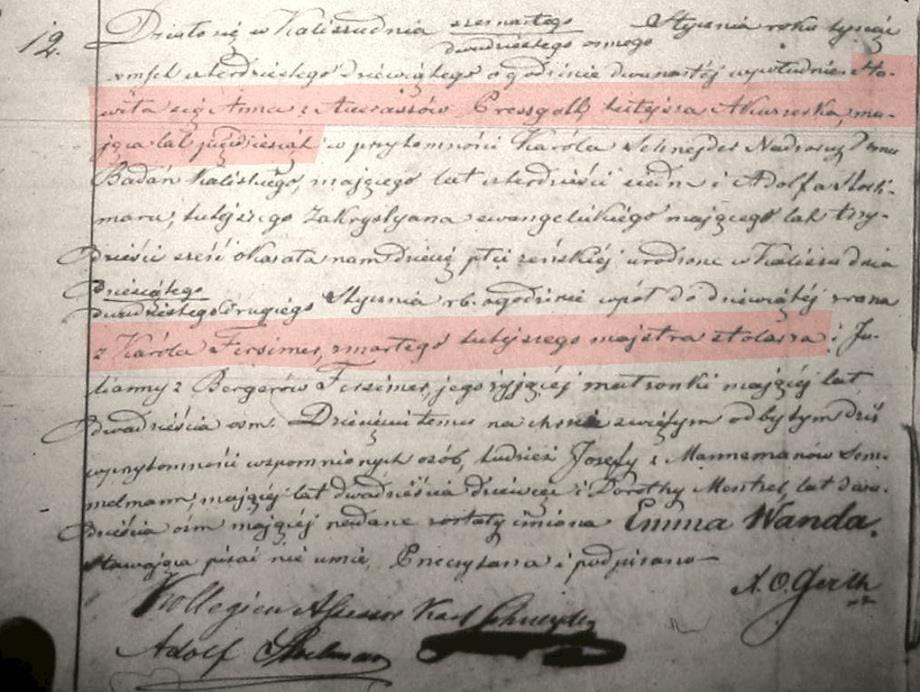 12.
Działo się w Kaliszu dnia czwartego Stycznia roku tysiąc
dwudziestego osmego
osmset czterdziestego dziewiątego o godzinie dwunastéj w południe. Sta-
wiła się Anna z Pressgoltz tutejsza Akuszerka, ma-
jąca lat pięćdziesiąt w przytomności Karóla Schnejder Nadzorcy Domu
Badań Kaliskiégo, mającego lat czterdzieści siedm i Adolfa
tutejszego Zakrystyana ewangelickiégo mającego lat trzy-
dzieści sześć okazała nam dziecię płci zeńskiéj urodzone w Kaliszu dnia
Dziesiątego
dwudziestego drugiego Stycznia rb. o godzinie wpół do dziewiątéj zrana
z Karóla Fersimer, zmarłego tutejszego majstra stolarza i Ju-
lianny z Bergerów Fersimer, jego żyjącéj małżonki mającéj lat
dwadzieścia osm. Dziecięciu temu na chrzcie świętym odbytym dziś
w przytomności wspomnionych osób, tudzież Józefy z Mannemanów Sem-
melmann, mającéj lat dwadzieścia dziewięć i Dorothy Mentzel, lat dwa-
dzieścia osm mającéj nadane zostały imiona Emma Wanda.
Stawająca pisać nie umie, Przeczytano i podpisano
Kollegien Assessor Karl Schneyder
Adolf